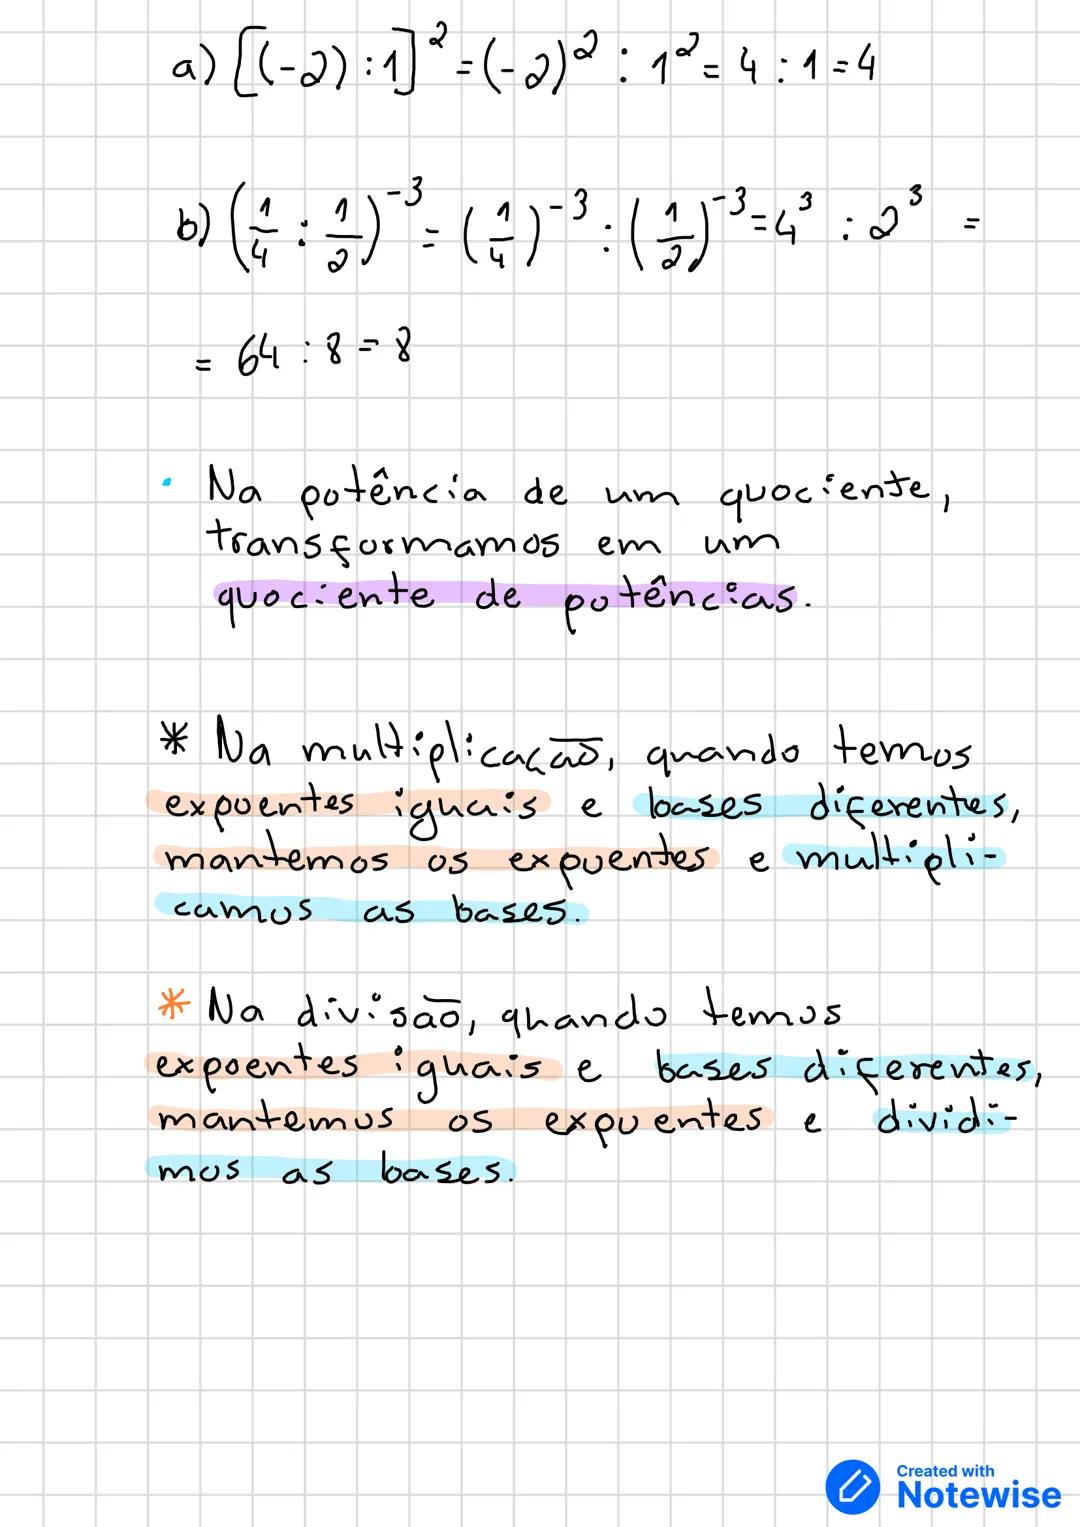 a) [(-2) : 1]² = (-2)² : 1² = 4 : 1 = 4
b) (1/4 : 1/2)⁻³ = (1/4)⁻³ : (1/2)⁻³ = 4³ : 2³ =
= 64 : 8 = 8
• Na potência de um quociente,
transformamos em um
quociente de potências.
* Na multiplicação, quando temos
expoentes iguais e bases diferentes,
mantemos os expoentes e multipli-
camos as bases.
* Na divisão, quando temos
expoentes iguais e bases diferentes,
mantemos os expoentes e dividi-
mos as bases.
Created with
Notewise